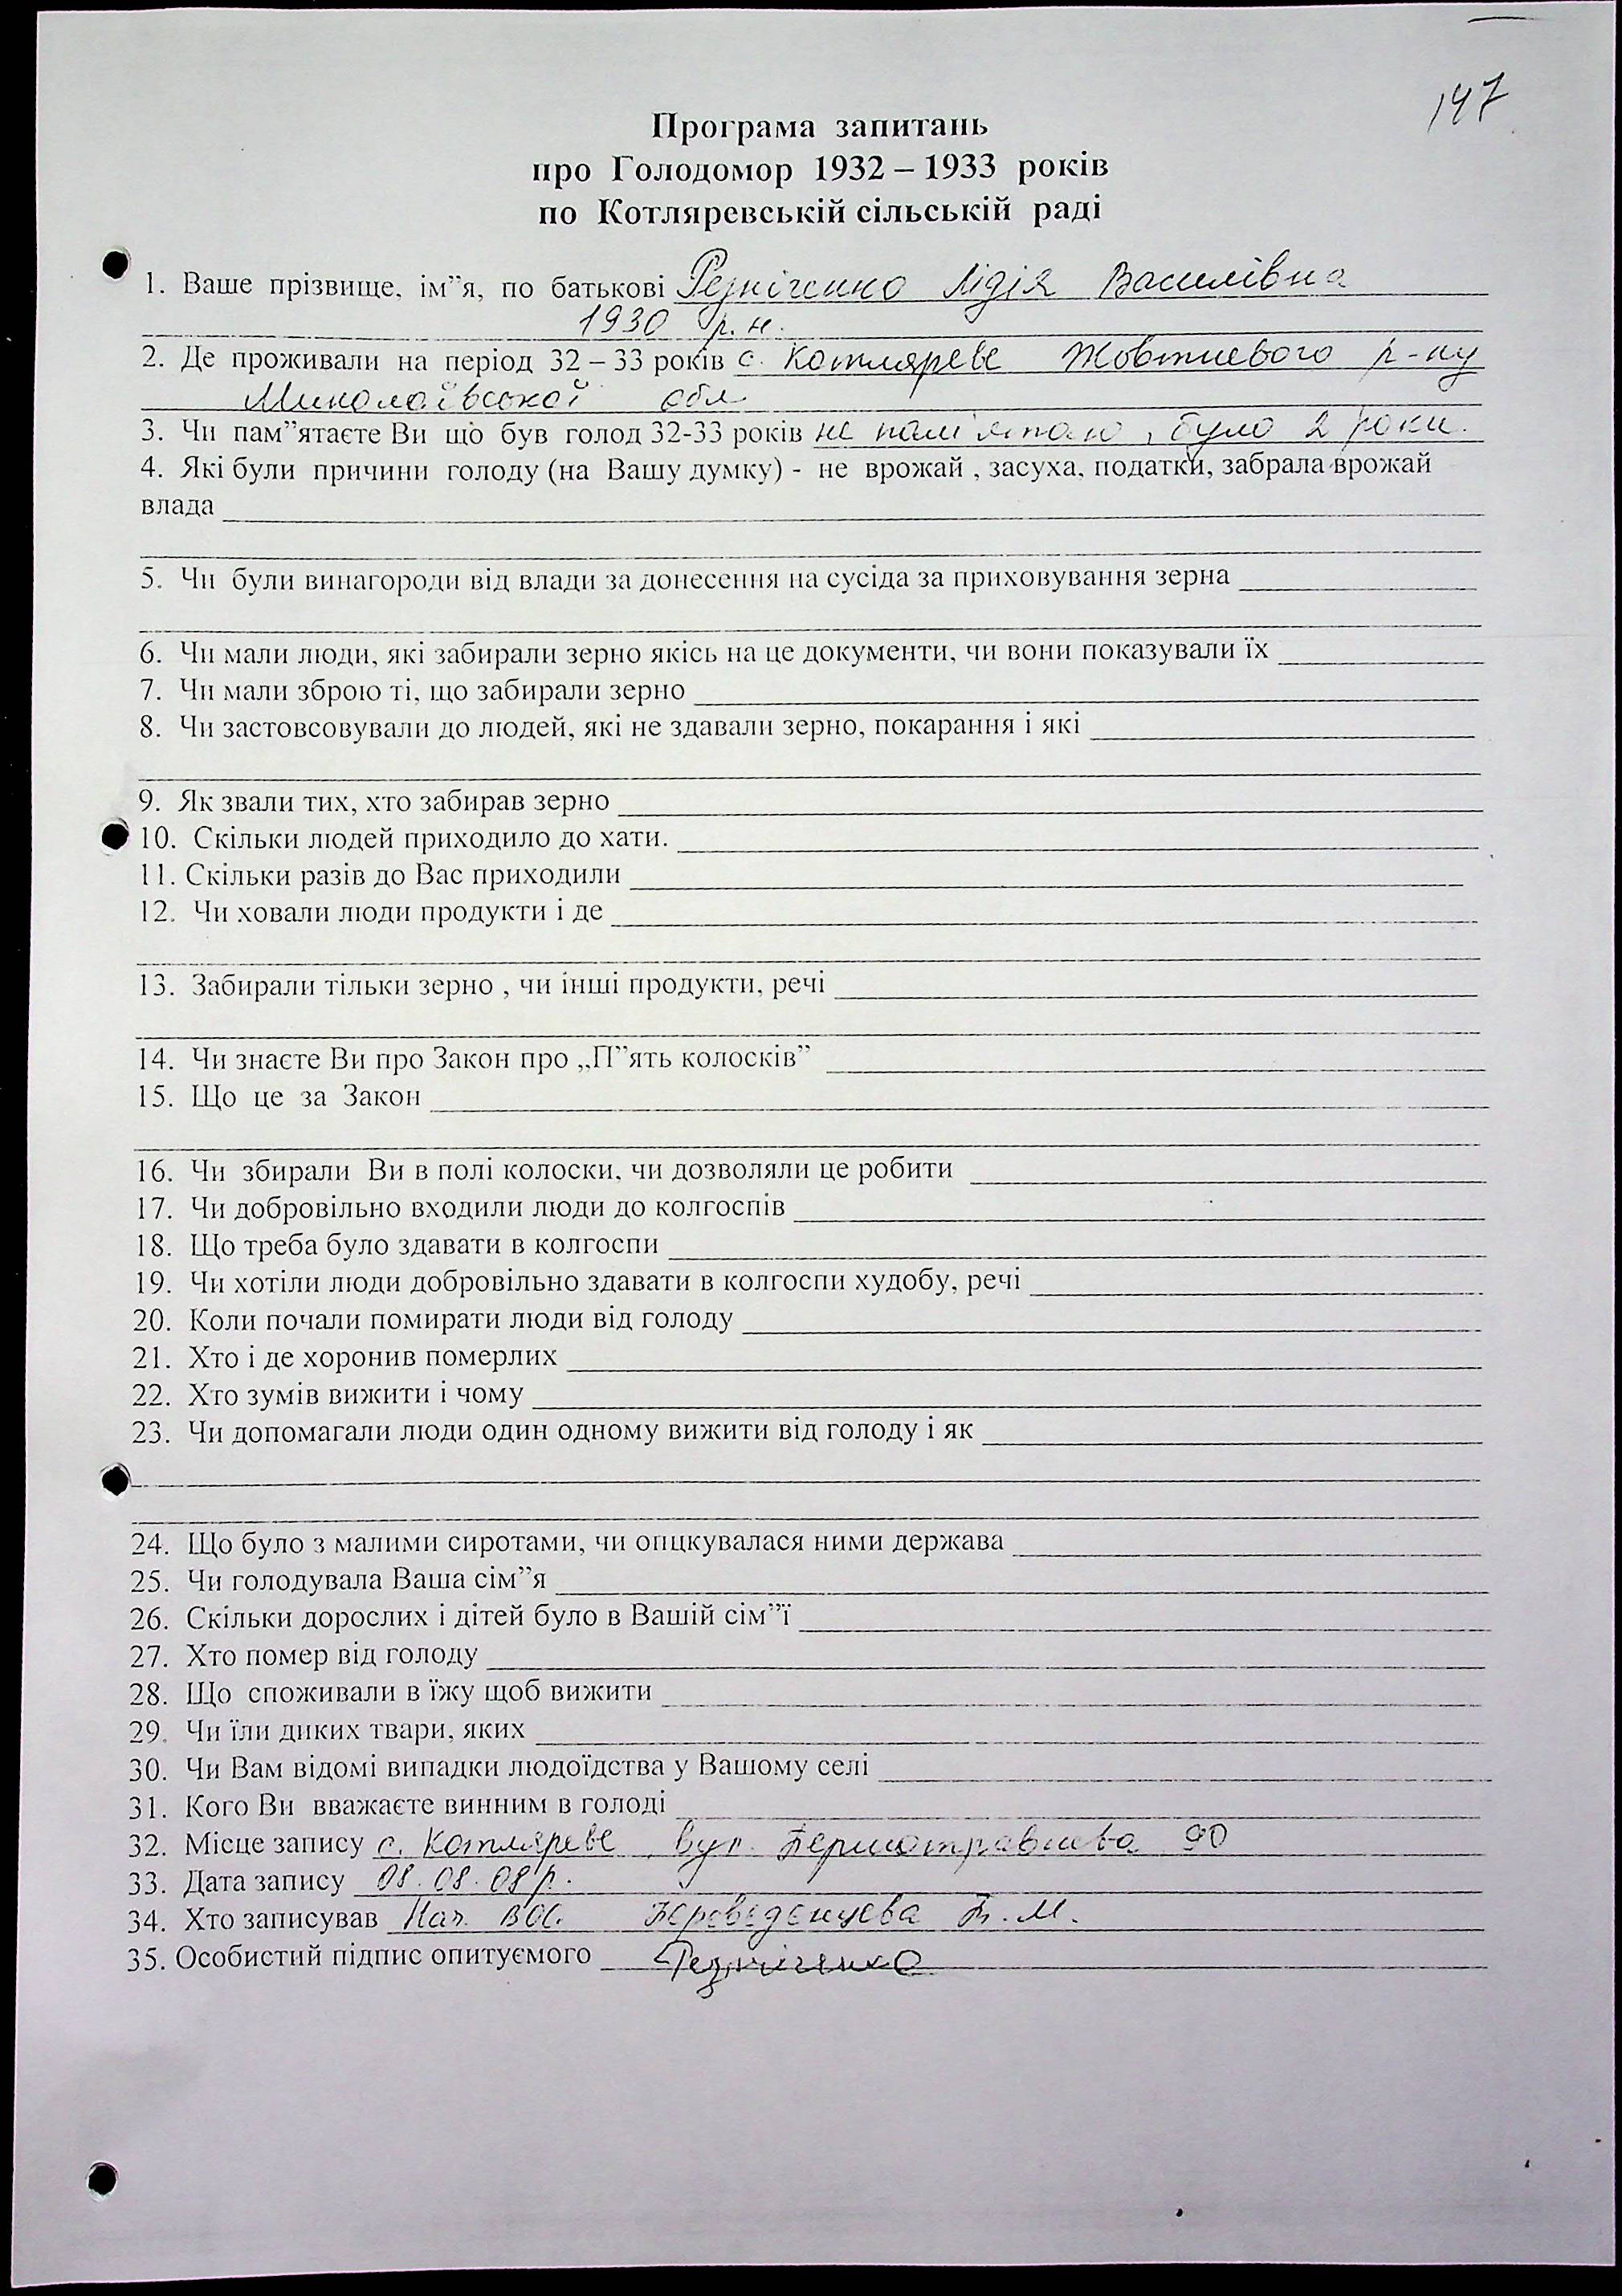 147
Програма запитань
про Голодомор 1932 – 1933 років
по Котляревській сільській раді
1. Ваше прізвище, ім”я, по батькові Резніченко Лідія Василівна
1930 р.н.
2. Де проживали на період 32 – 33 років с. Котляреве Жовтневого р-ну
Миколаївської обл
3. Чи пам”ятаєте Ви що був голод 32-33 років не пам'ятаю, було 2 роки.
4. Які були причини голоду (на Вашу думку) - не врожай , засуха, податки, забрала врожай
влада
5. Чи були винагороди від влади за донесення на сусіда за приховування зерна
6. Чи мали люди, які забирали зерно якісь на це документи, чи вони показували їх
7. Чи мали зброю ті, що забирали зерно
8. Чи застовсовували до людей, які не здавали зерно, покарання і які
9. Як звали тих, хто забирав зерно
10. Скільки людей приходило до хати.
11. Скільки разів до Вас приходили
12. Чи ховали люди продукти і де
13. Забирали тільки зерно , чи інші продукти, речі
14. Чи знаєте Ви про Закон про „П”ять колосків”
15. Що це за Закон
16. Чи збирали Ви в полі колоски, чи дозволяли це робити
17. Чи добровільно входили люди до колгоспів
18. Що треба було здавати в колгоспи
19. Чи хотіли люди добровільно здавати в колгоспи худобу, речі
20. Коли почали помирати люди від голоду
21. Хто і де хоронив померлих
22. Хто зумів вижити і чому
23. Чи допомагали люди один одному вижити від голоду і як
24. Що було з малими сиротами, чи опцкувалася ними держава
25. Чи голодувала Ваша сім”я
26. Скільки дорослих і дітей було в Вашій сім”ї
27. Хто помер від голоду
28. Що споживали в їжу щоб вижити
29. Чи їли диких твари, яких
30. Чи Вам відомі випадки людоїдства у Вашому селі
31. Кого Ви вважаєте винним в голоді
32. Місце запису с. Котляреве, вул. Першотравнева 90
33. Дата запису 08.08.08р.
34. Хто записував Нач. ВОС. Переведенцева Т. М.
35. Особистий підпис опитуємого Резніченко